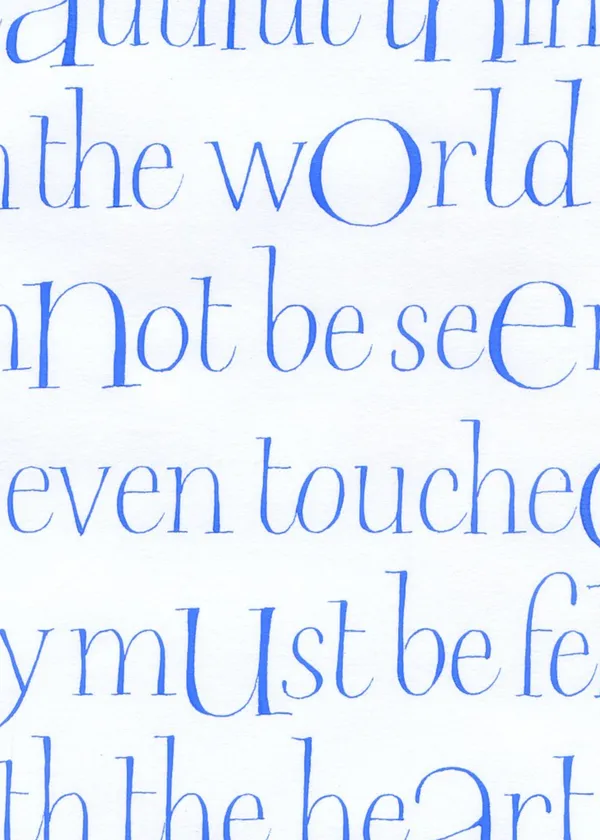 autiful thin
n the world
nnot be seen
even touched
y must be fel
th the heart